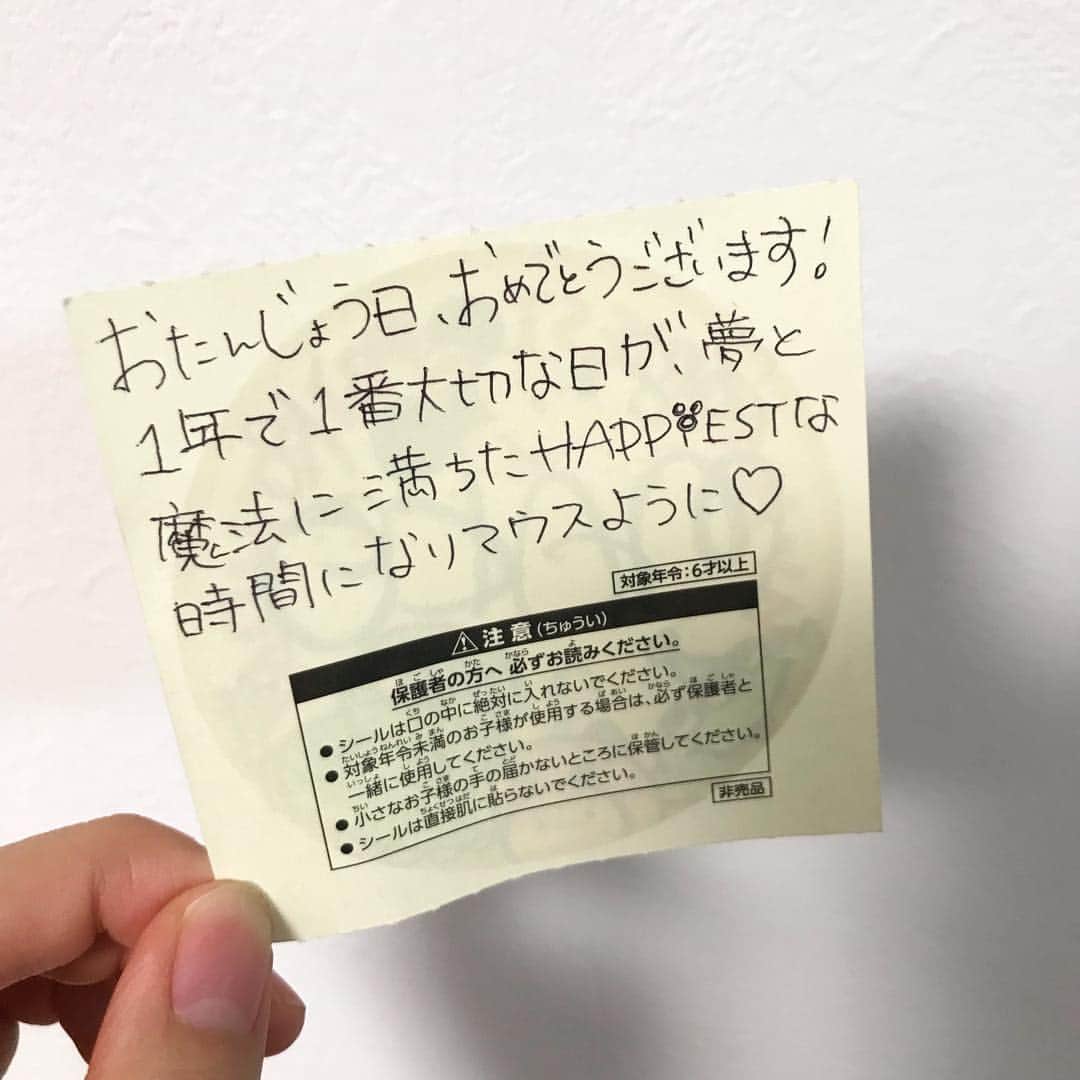 おたんじょう日、おめでとうございます!
1年で1番大切な日が、夢と
魔法に満ちたHAPPiESTな
時間になりマウスように♡
対象年令:6才以上
⚠注意(ちゅうい)
保護者の方へ 必ずお読みください。
●シールは口の中に絶対に入れないでください。
●対象年令未満のお子様が使用する場合は、必ず保護者と
一緒に使用してください。
●小さなお子様の手の届かないところに保管してください。
●シールは直接肌に貼らないでください。
非売品